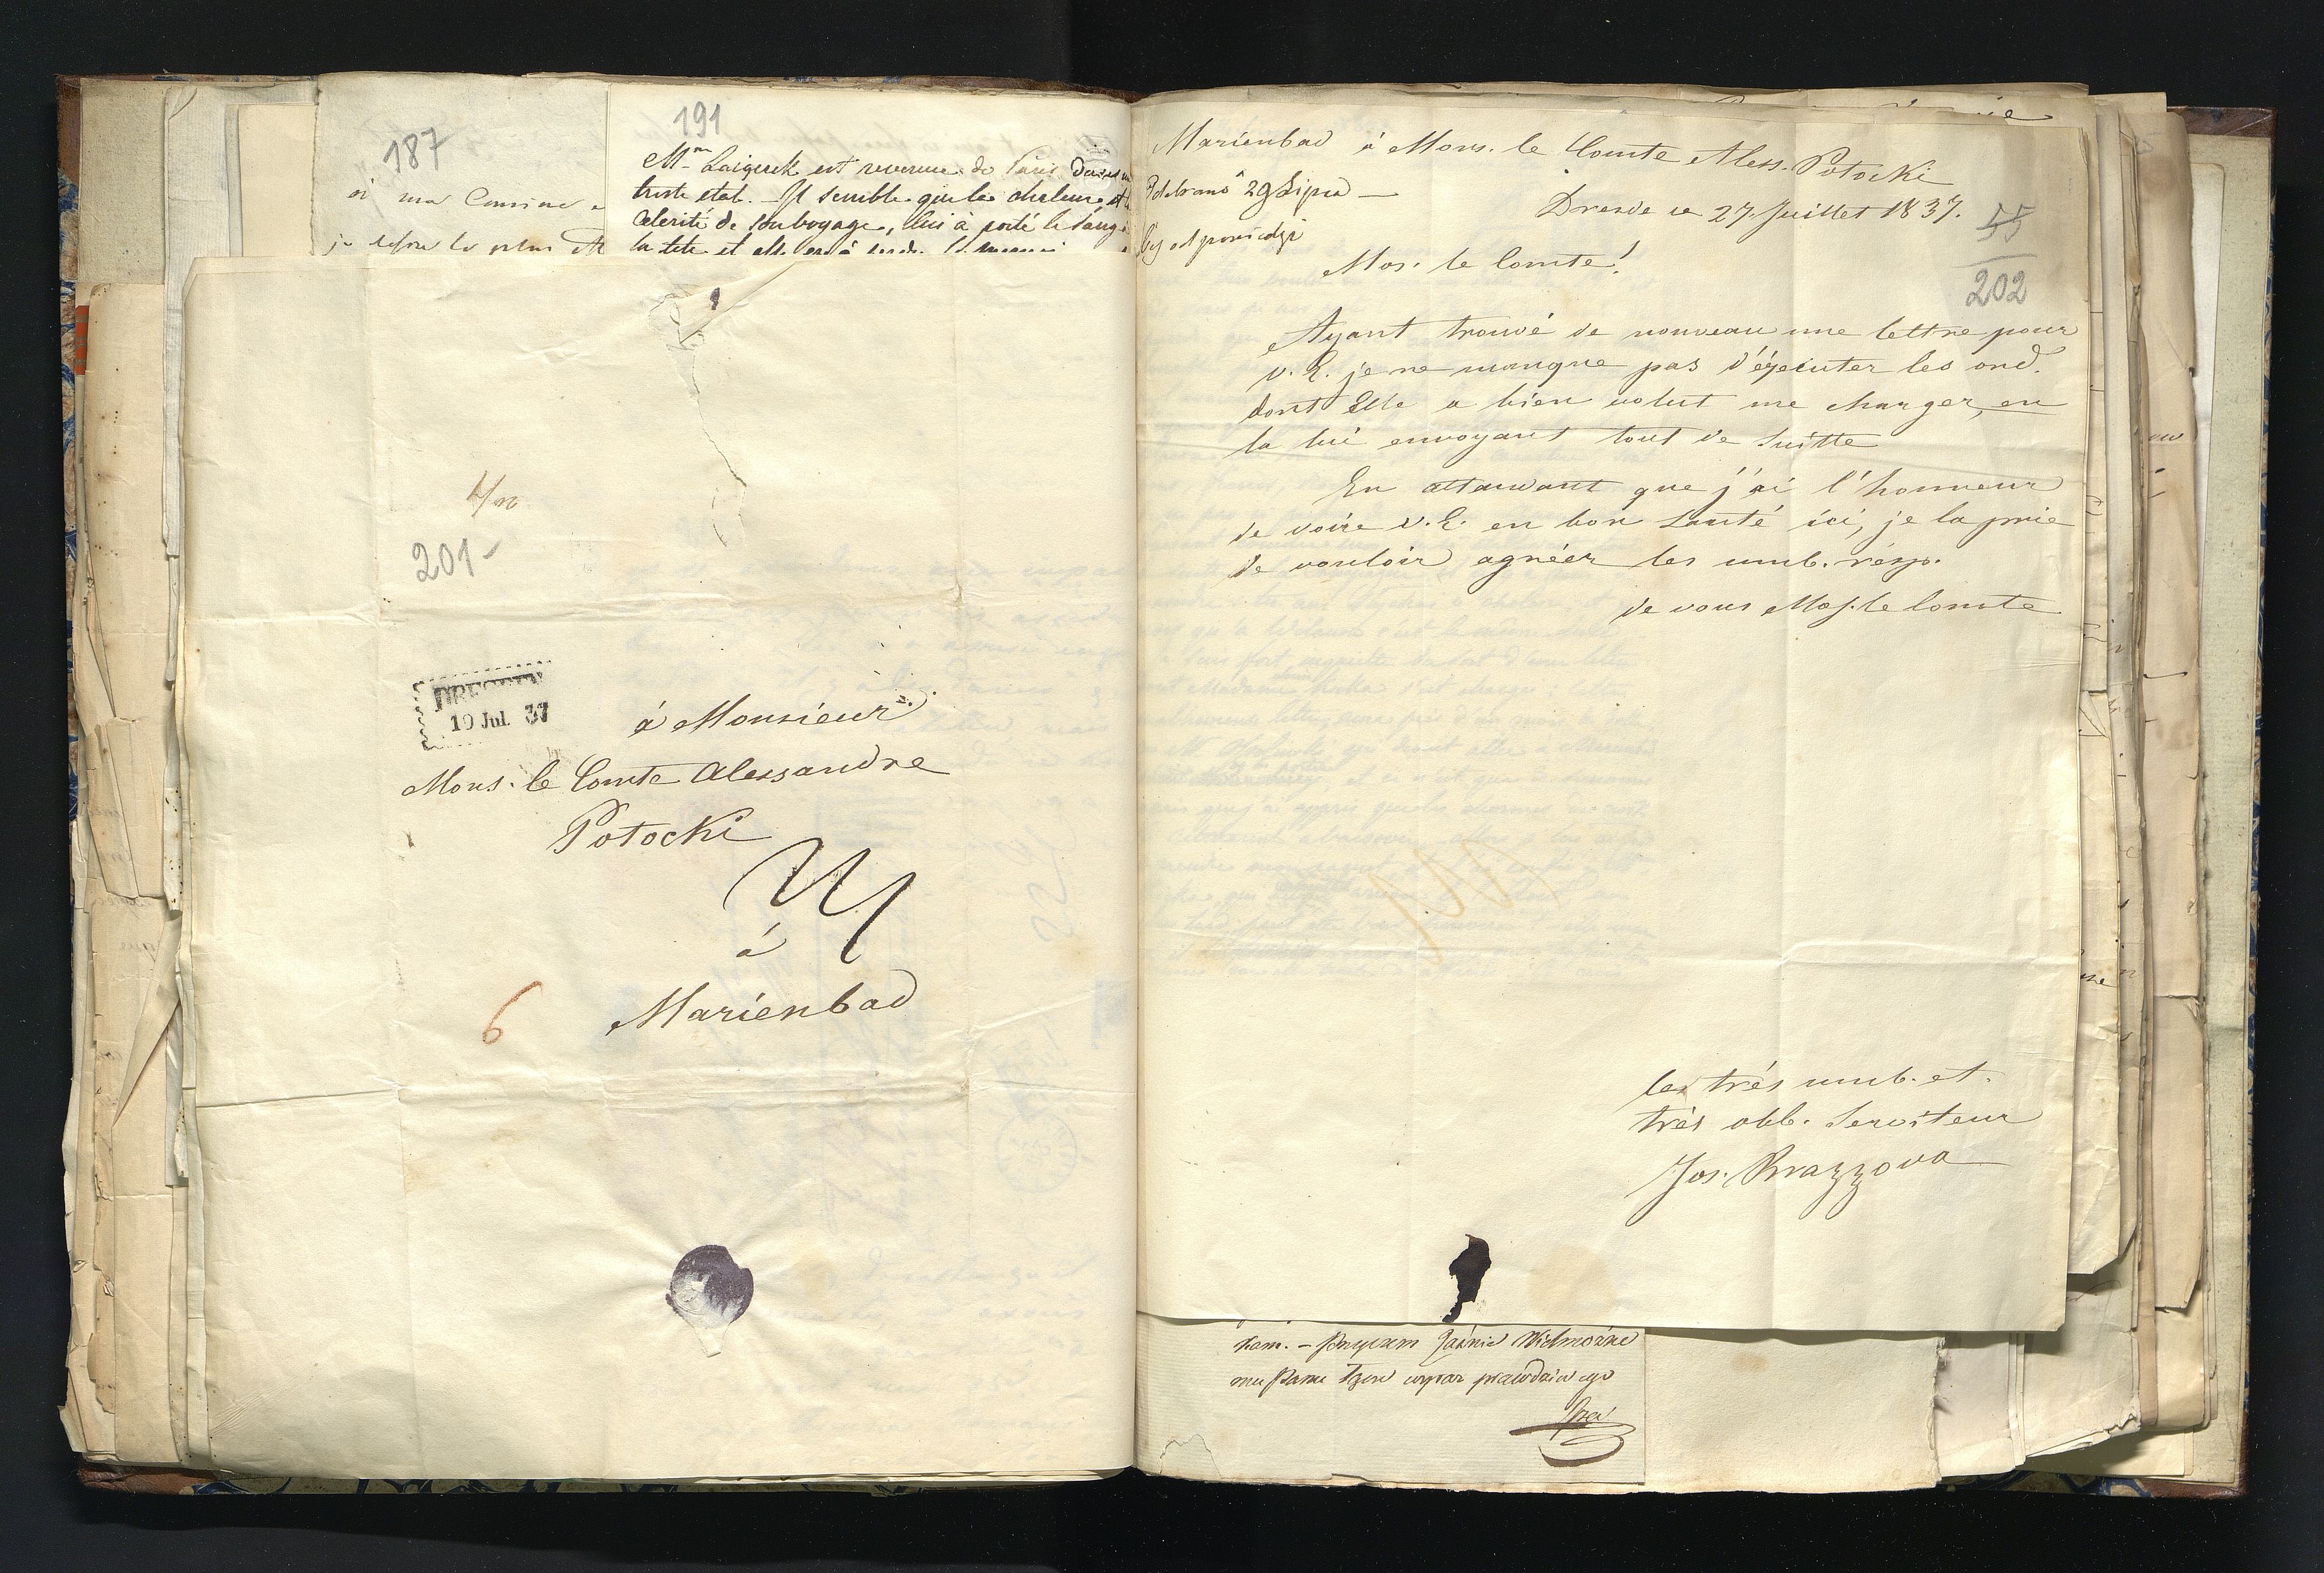 187
où ma Cousine
je
191
Mme est revenue de Paris dans un
triste etat. Il semble que les chaleurs et la
celerité de son voyage, lui à porté le sang
la tete et elle
4/10
201-
DRESDEN
19 Jul. 37
à Monsieur
Mons. le Comte Alessandre
Potocki
à
Marienbad
6
Marienbad à Mons. le Comte Aless. Potocki
Odebrano 29 Lipca
Dresde ce 27 Juillet 1837.
bez odpowiedzi
55
202
Mos. le Comte!
Ayant trouvé de nouveau une lettre pour
V. E. je ne manque pas d'éxecuter les ord.
dont Elle a bien volut me charger, en
la lui envoyant tout de suitte
En attandant que j'ai l'honneur
de voire V. E. en bon santé ici, je la prie
de vouloir agréer les umb. résp.
de vous Mos. le Comte
le très umb. et.
très obb. Serviteur
Jos. Brazzova
nam. – Jaśnie Wielmożne
mu Panu wyraz prawdziwego